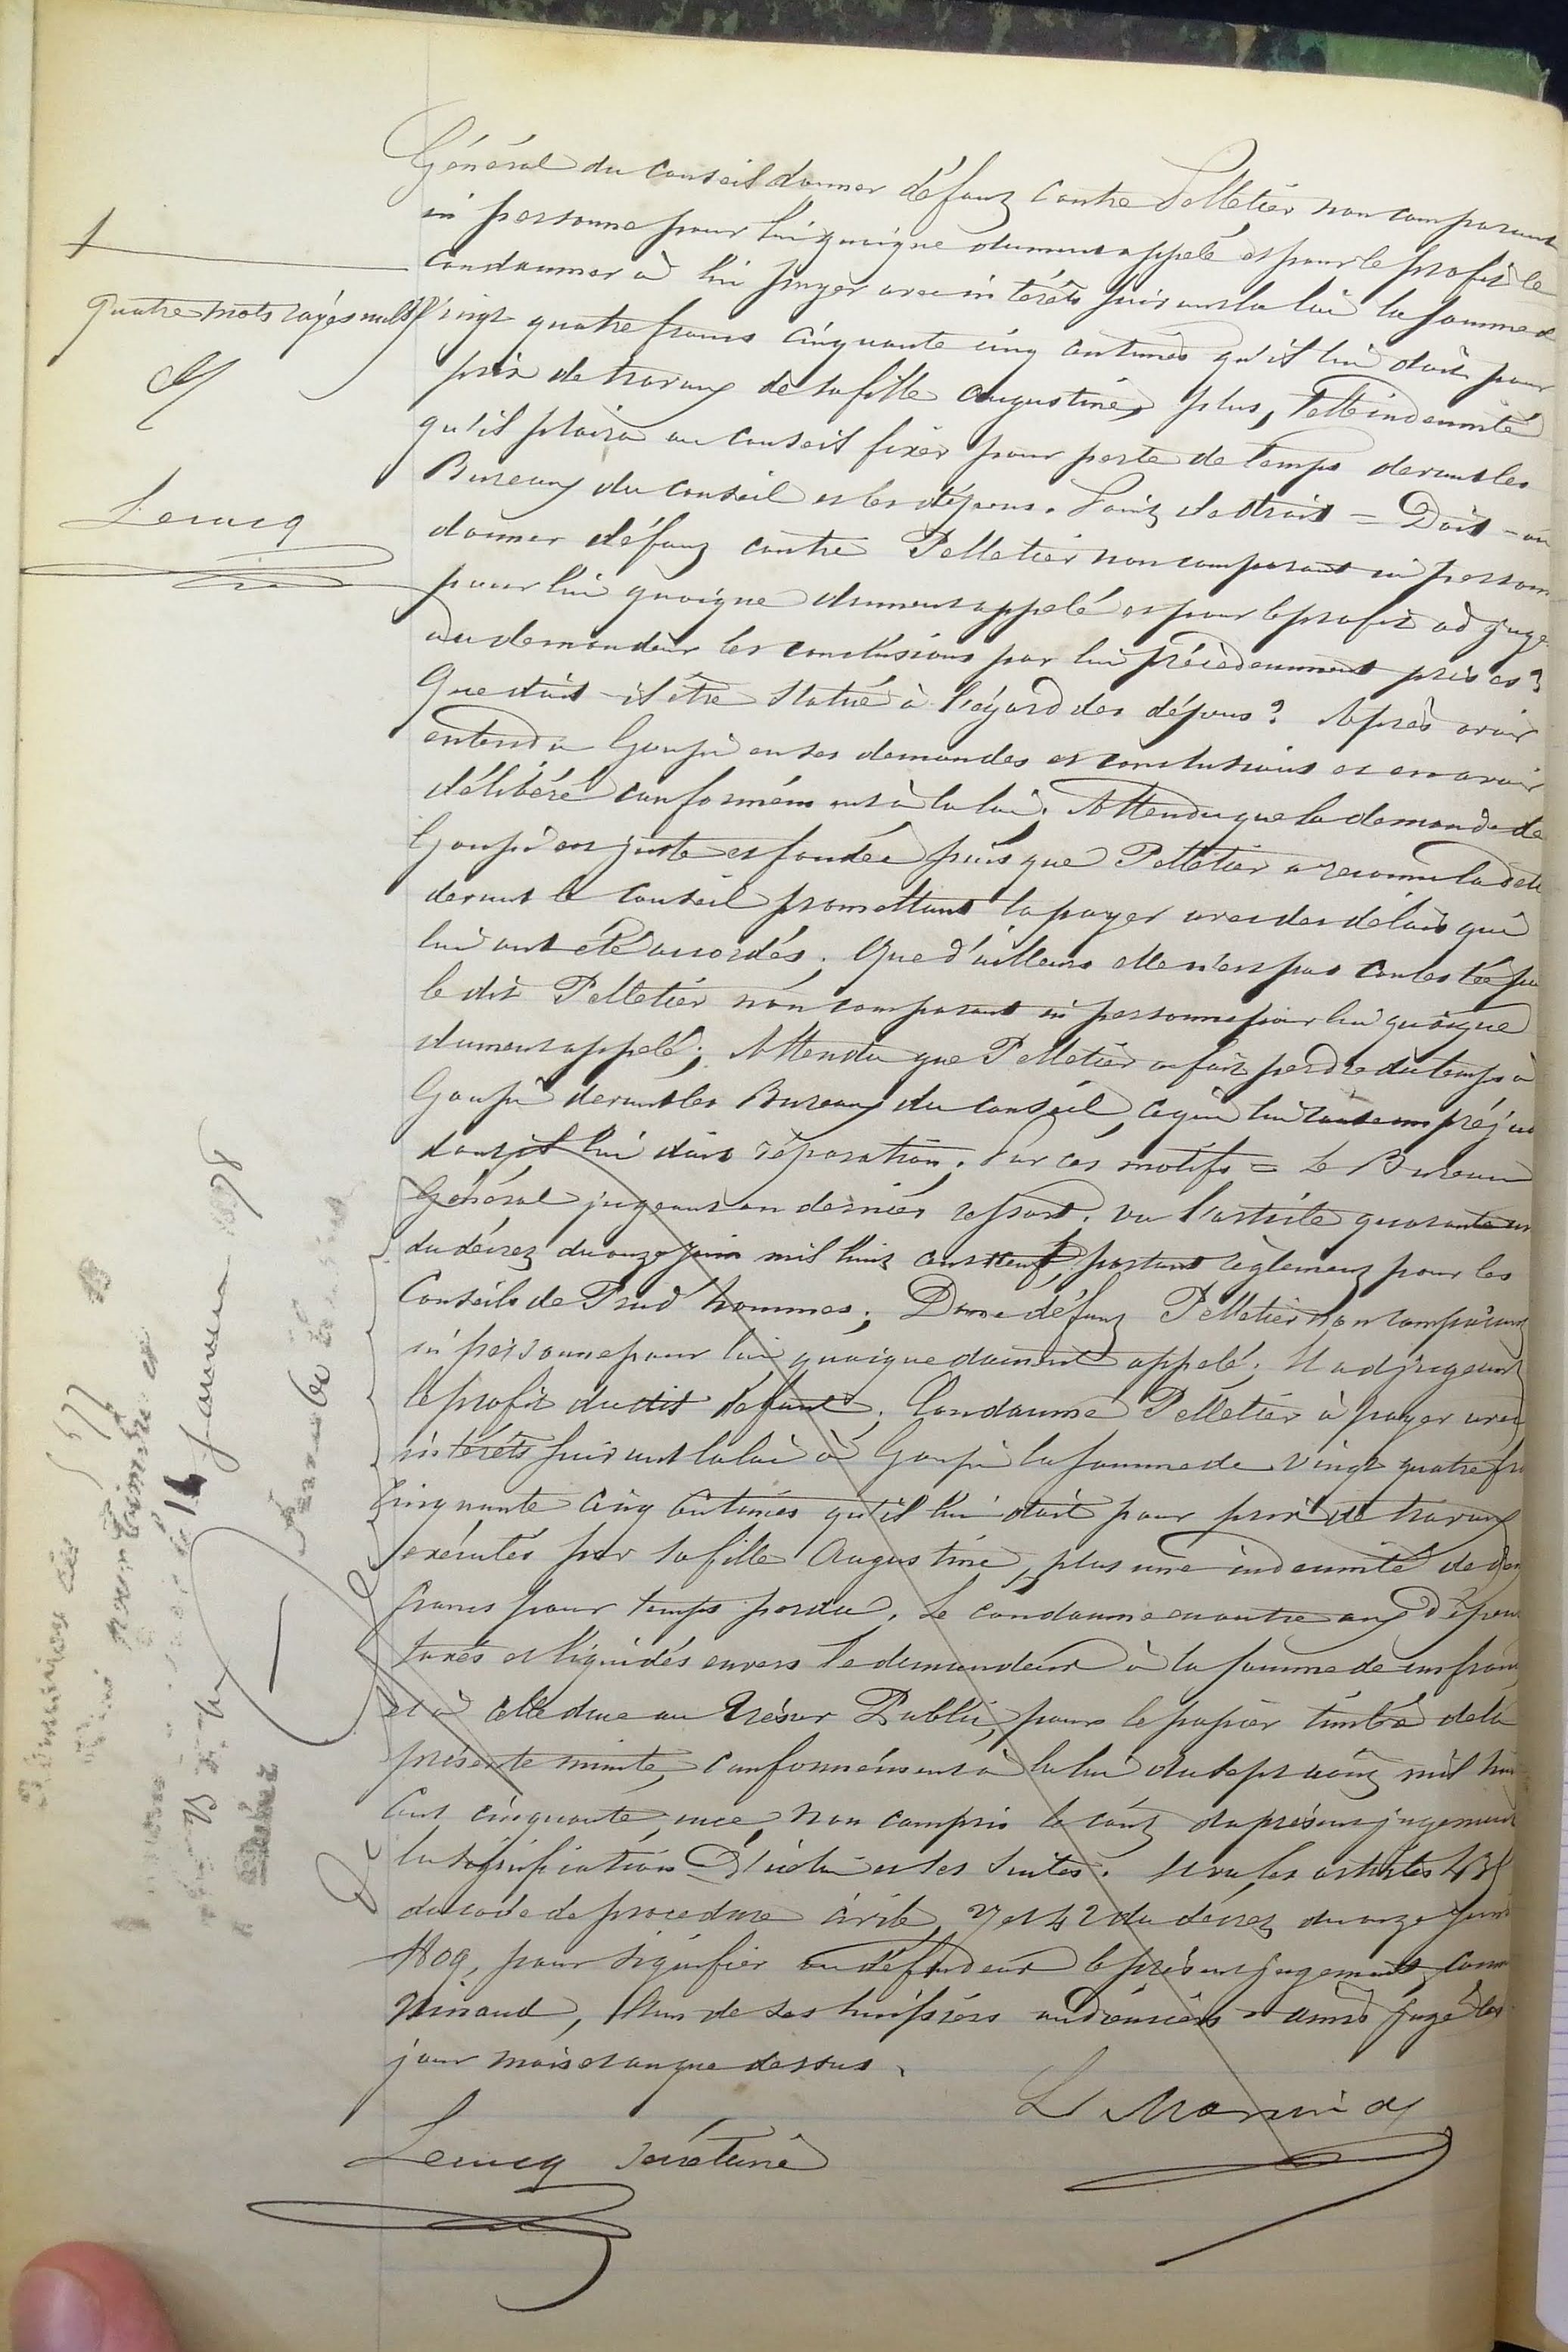 Général du Conseil donner défaut contre Pelletier non comparant
ni personne pour lui quoique dument appelé et pour le profit le
condamner à lui payer avec intérêts suivant la loi la somme de
quatre mots rayés nuls
Lecucq
vingt quatre francs cinquante cinq centimes qu'il lui doit pour
prix de travaux de sa fille Augustine, plus, telle indemnité
qu'il plaira au Conseil fixer pour perte de temps devant les
Bureaux du Conseil et les dépens. Point de droit = Doit-on
donner défaut contre Pelletier non comparant ni personne
pour lui quoique dument appelé et pour le profit adjuger
au demandeur les conclusions par lui précédemment prises?
Que doit-il être statué à l'égard des dépens? Après avoir
entendu Goupi en ses demandes et conclusions et en avoir
délibéré conformément à la loi; Attendu que la demande de
Goupi est juste et fondée puisque Pelletier a reconnu la dette
devant le Conseil promettant la payer avec des délais qui
lui ont été accordés; Que d'ailleurs elle n'est pas contestée par
le dit Pelletier non comparant ni personne pour lui quoique
dument appelé; Attendu que Pelletier a fait perdre du temps à
Goupi devant les Bureaux du Conseil, ce qui lui cause un préju
dont il lui doit réparation; Par ces motifs = Le Bureau
Général jugeant en dernier ressort; vu l'article quarante un
du décret du onze juin mil huit cent neuf, portant règlement pour les
Conseils de Prud'hommes; Donne défaut Pelletier non comparant
ni personne pour lui quoique dument appelé; Et adjugeant
le profit dudit défaut; Condamne Pelletier à payer avec
intérêts suivant la loi à Goupi la somme de vingt quatre fr
cinquante cinq centimes qu'il lui doit pour prix de travaux
exécutés par sa fille Augustine, plus une indemnité de deux
francs pour temps perdu; Le condamne en outre aux dépens
taxés et liquidés envers le demandeur à la somme de un franc
et à celle due au Trésor Public, pour le papier timbré de la
présente minute, conformément à la loi du sept août mil huit
cent cinquante, ence, non compris le coût du présent jugement
la signification d'icelui et ses suites. Et vu les articles 435
du code de procédure civile, 27 et 42 du décret du onze juin
1809, pour signifier au défendeur le présent jugement, commet
l'un de ses huissiers audienciers = Ainsi jugé les
jour mois et an que dessus.
Lecucq secrétaire
janvier 1878